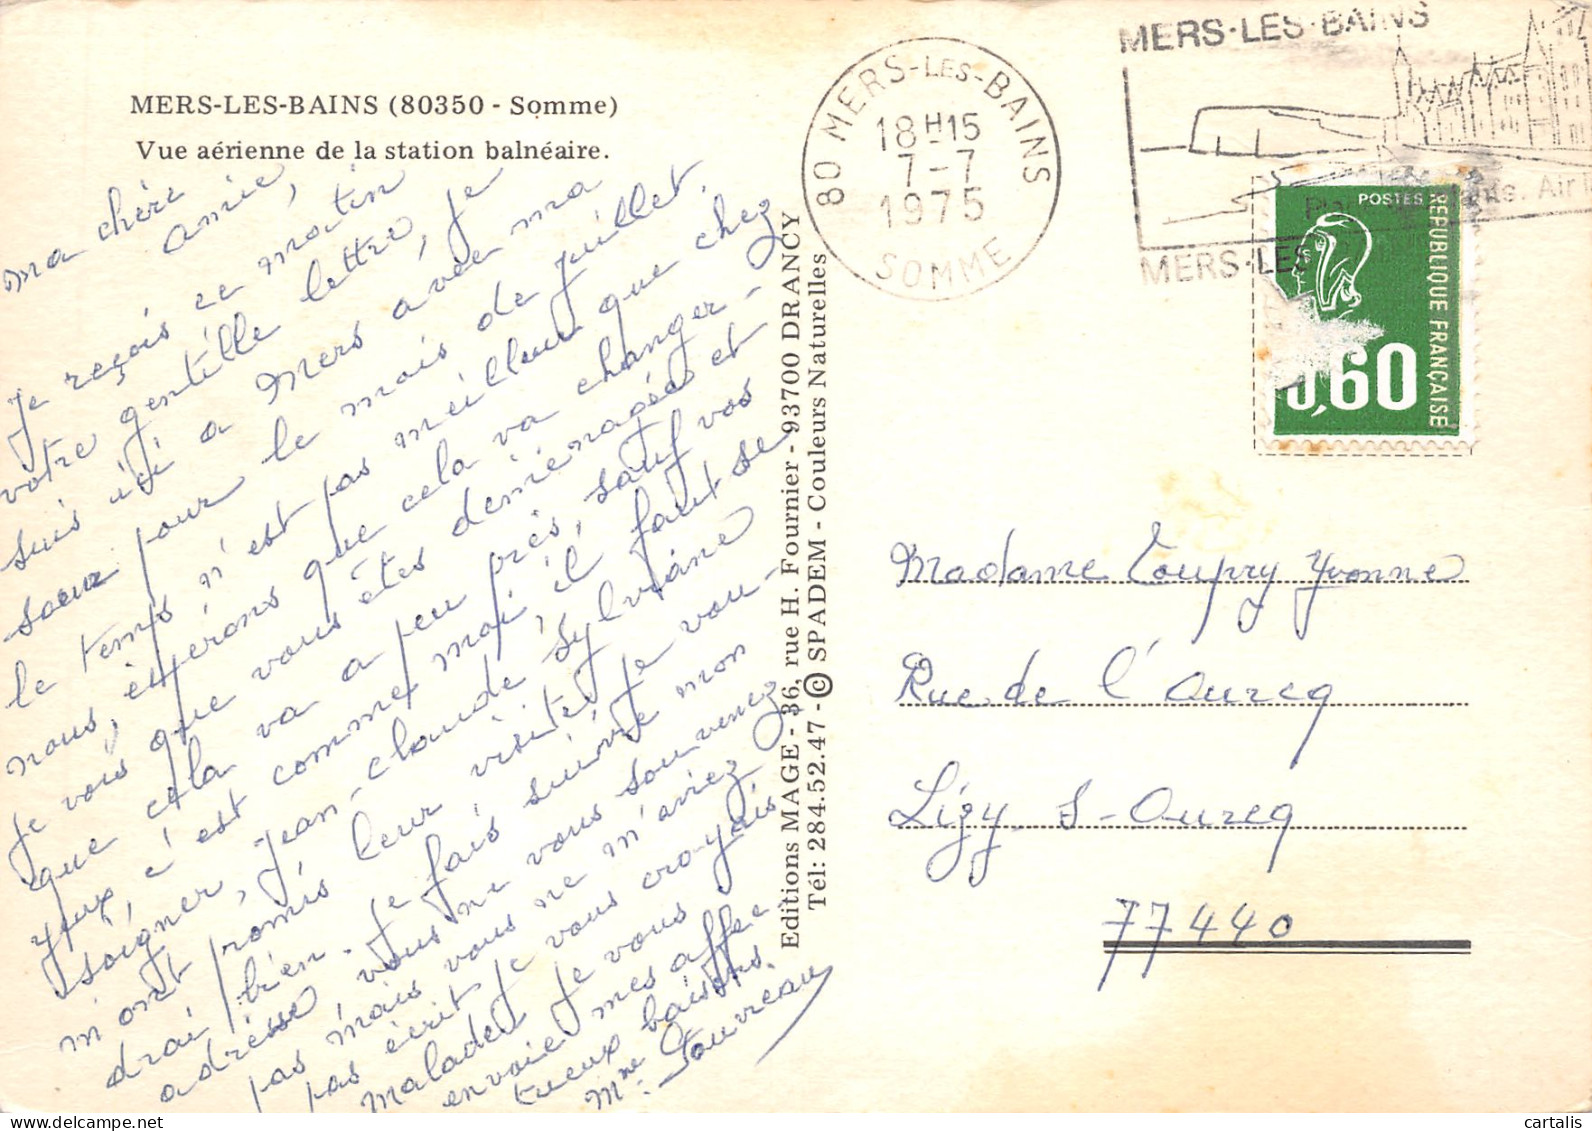 MERS-LES-BAINS (80350 - Somme)
Vue aérienne de la station balnéaire.
ma chère
amie,
Je reçois ce matin
votre gentille lettre, je
suis ici a Mers avec ma
soeur pour le mois de juillet.
le temps n'est pas meilleur que chez
nous, éspérons que cela va changer-
Je vois que vous êtes déménagée et
que cela va a peu près, sauf vos
yeux, c'est comme moi, il faut se
soigner, jean-claude Sylviane
m'ont promis leur visite, je vou-
drai bien. Je fais suivre mon
adrèsse, vous ne vous souvenez
pas mais vous ne m'aviez
pas écrit je vous croyais
malade, je vous
envoie mes affec
tueux baisers.
mme
Editions MAGE - 36, rue H. Fournier - 93700 DRANCY
Tél: 284.52.47 - © SPADEM - Couleurs Naturelles
80 MERS-LES-BAINS
18H15
7-7
1975
SOMME
MERS·LES·BAINS
MERS·LES
POSTES
REPUBLIQUE FRANÇAISE
0,60
Madame Toupry Yvonne
Rue de l'Ourcq
Lizy-s-Ourcq
77440
cartalis
www.delcampe.net